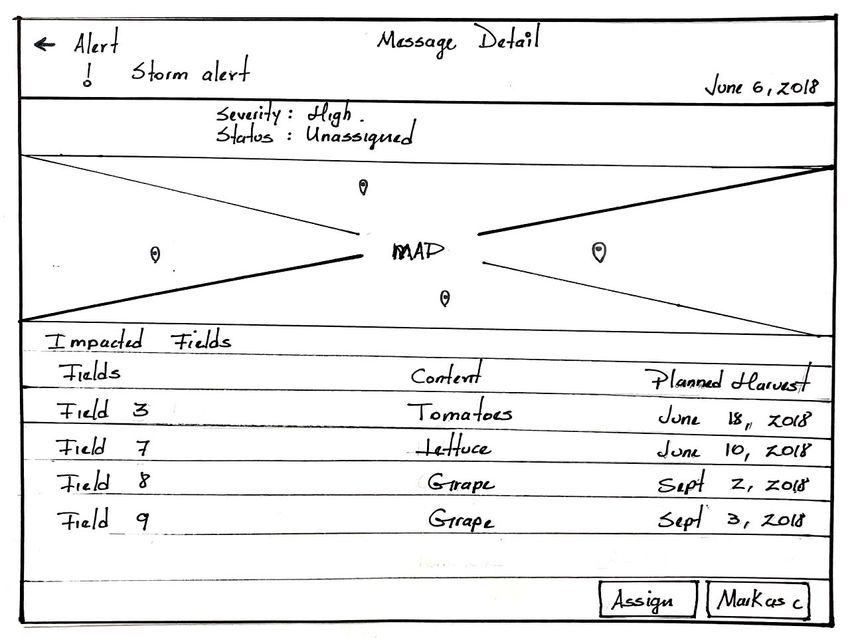 ← Alert Message Detail
! Storm alert
June 6, 2018
Severity : High.
Status : Unassigned
MAP
Impacted Fields
Fields Content Planned Harvest
Field 3 Tomatoes June 18, 2018
Field 7 Lettuce June 10, 2018
Field 8 Grape Sept 2, 2018
Field 9 Grape Sept 3, 2018
Assign Mark as c